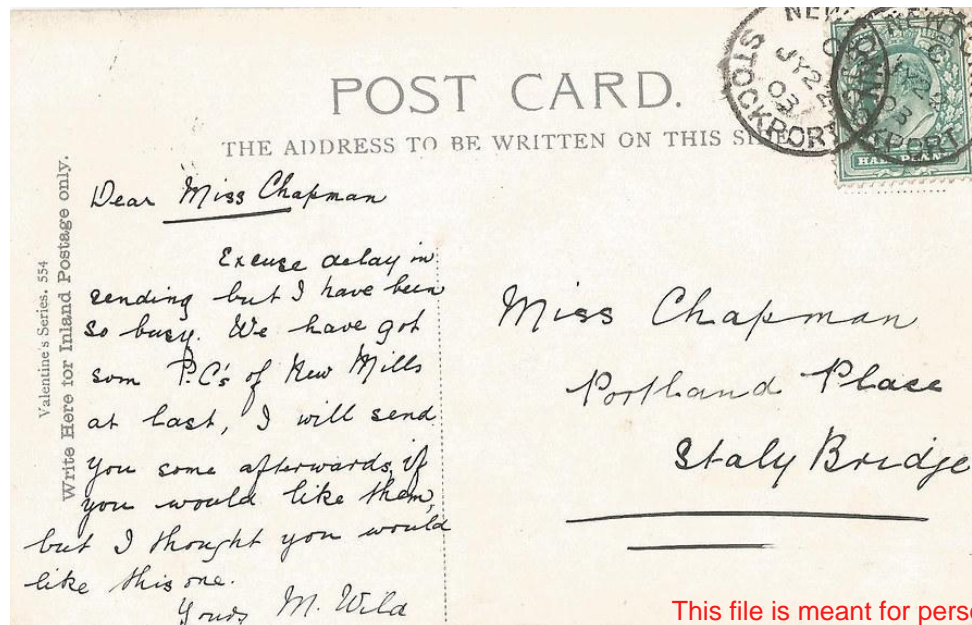 POST CARD.
THE ADDRESS TO BE WRITTEN ON THIS SIDE
NEW
C
JY 22
03
STOCKPORT
NEWTO
C
JY 22
03
KPORT
HALF PENNY
Valentine's Series. 554
Write Here for Inland Postage only.
Dear Miss Chapman
Excuse delay in
sending but I have been
so busy. We have got
som P.C's of New Mills
at last, I will send
you some afterwards, if
you would like them,
but I thought you would
like this one.
Yours M. Wild
Miss Chapman
Portland Place
Staly Bridge
This file is meant for pers